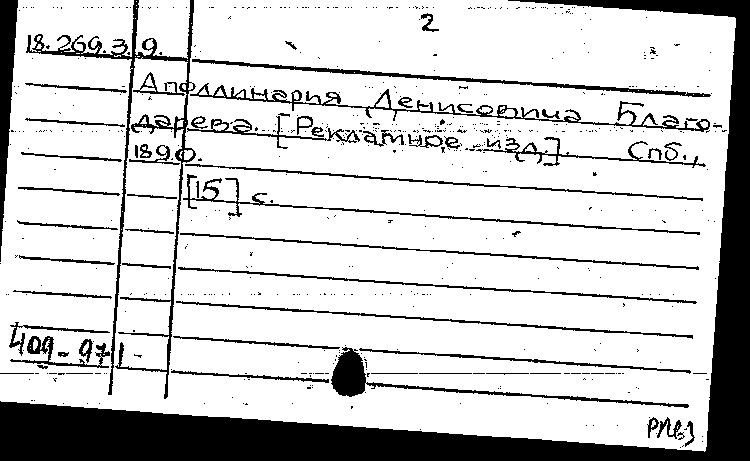 2
18.269.3.9.
Аполлинария Денисовича Благо-
дарева. [Рекламное изд.]. Спб.,
1890.
[15] с.
409-971-